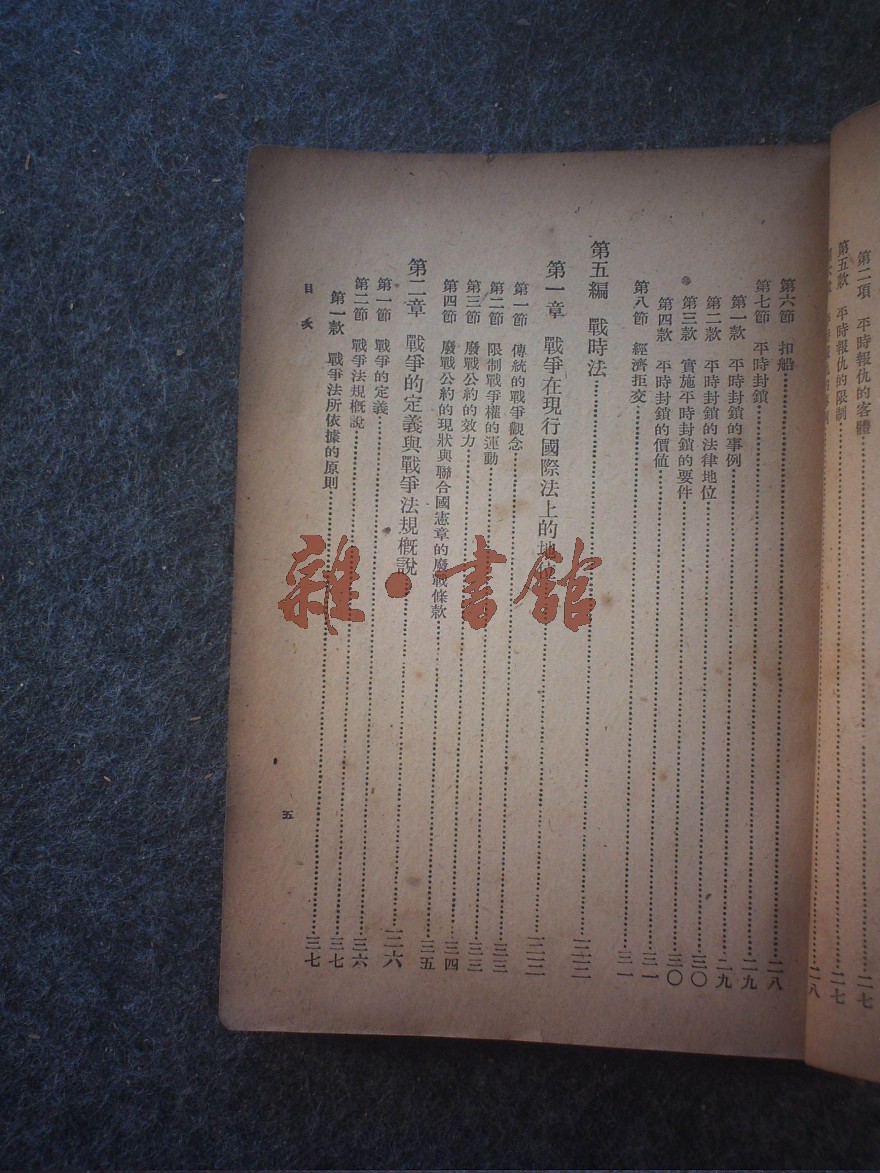 第二項 平時報仇的客體……二七
第五款 平時報仇的限制……二七
……二八
第六節 扣船……二八
第七節 平時封鎖……二九
第一款 平時封鎖的事例……二九
第二款 平時封鎖的法律地位……三〇
第三款 實施平時封鎖的要件……三〇
第四款 平時封鎖的價值……三一
第八節 經濟拒交……三一
第五編 戰時法……三二
第一章 戰爭在現行國際法上的地位……三二
第一節 傳統的戰爭觀念……三三
第二節 限制戰爭權的運動……三三
第三節 廢戰公約的效力……三四
第四節 廢戰公約的現狀與聯合國憲章的廢戰條款……三五
第二章 戰爭的定義與戰爭法規概說……三六
第一節 戰爭的定義……三六
第二節 戰爭法規概說……三七
第一款 戰爭法所依據的原則……三七
目次
五
雜·書館